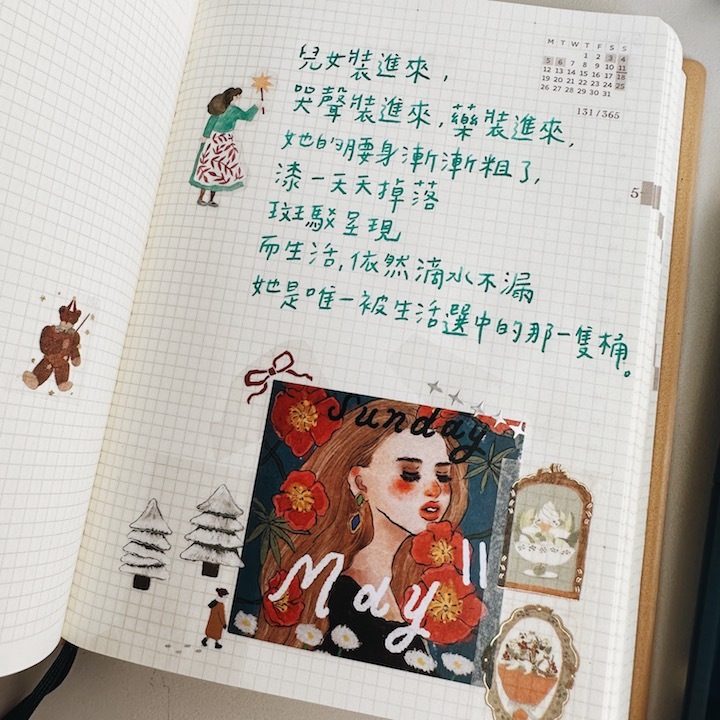 兒女裝進來,
哭聲裝進來,藥裝進來,
她的腰身漸漸粗了,
漆一天天掉落
斑駁呈現
而生活,依然滴水不漏
她是唯一被生活選中的那一隻桶。
M T W T F S S
1 2 3 4
5 6 7 8 9 10 11
12 13 14 15 16 17 18
19 20 21 22 23 24 25
26 27 28 29 30 31
131/365
5
Sunday
May 11